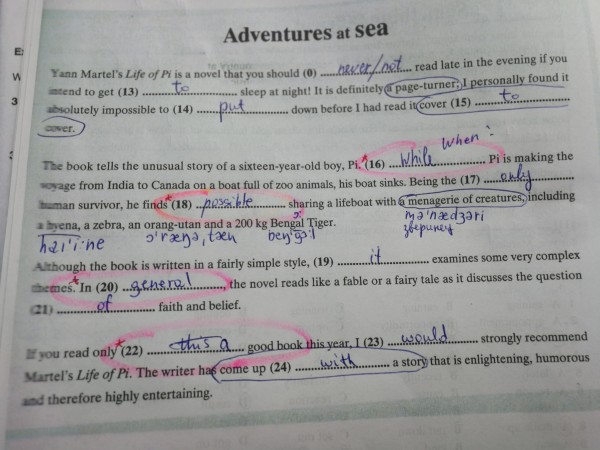 Adventures at sea
Yann Martel's Life of Pi is a novel that you should (0) never/not read late in the evening if you
intend to get (13) to sleep at night! It is definitely a page-turner; I personally found it
absolutely impossible to (14) put down before I had read it cover (15) to
cover.
when:
The book tells the unusual story of a sixteen-year-old boy, Pi.* (16) while Pi is making the
voyage from India to Canada on a boat full of zoo animals, his boat sinks. Being the (17) only
human survivor, he finds* (18) possible sharing a lifeboat with a menagerie of creatures, including
mə'nædʒəri
a hyena, a zebra, an orang-utan and a 200 kg Bengal Tiger.
зверинец
hai'i:nə ɔ'ræŋə,tæn
Although the book is written in a fairly simple style, (19) it examines some very complex
themes.* In (20) general, the novel reads like a fable or a fairy tale as it discusses the question
(21) of faith and belief.
If you read only* (22) this a good book this year, I (23) would strongly recommend
Martel's Life of Pi. The writer has come up (24) with a story that is enlightening, humorous
and therefore highly entertaining.